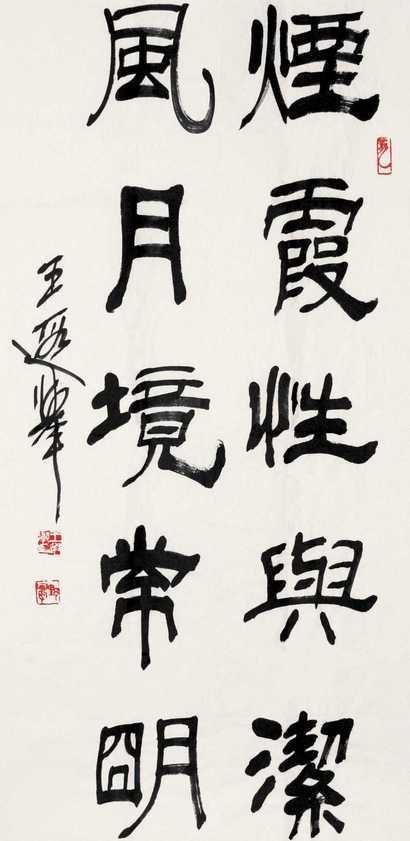 煙霞性與潔
風月境常朙
王遐舉